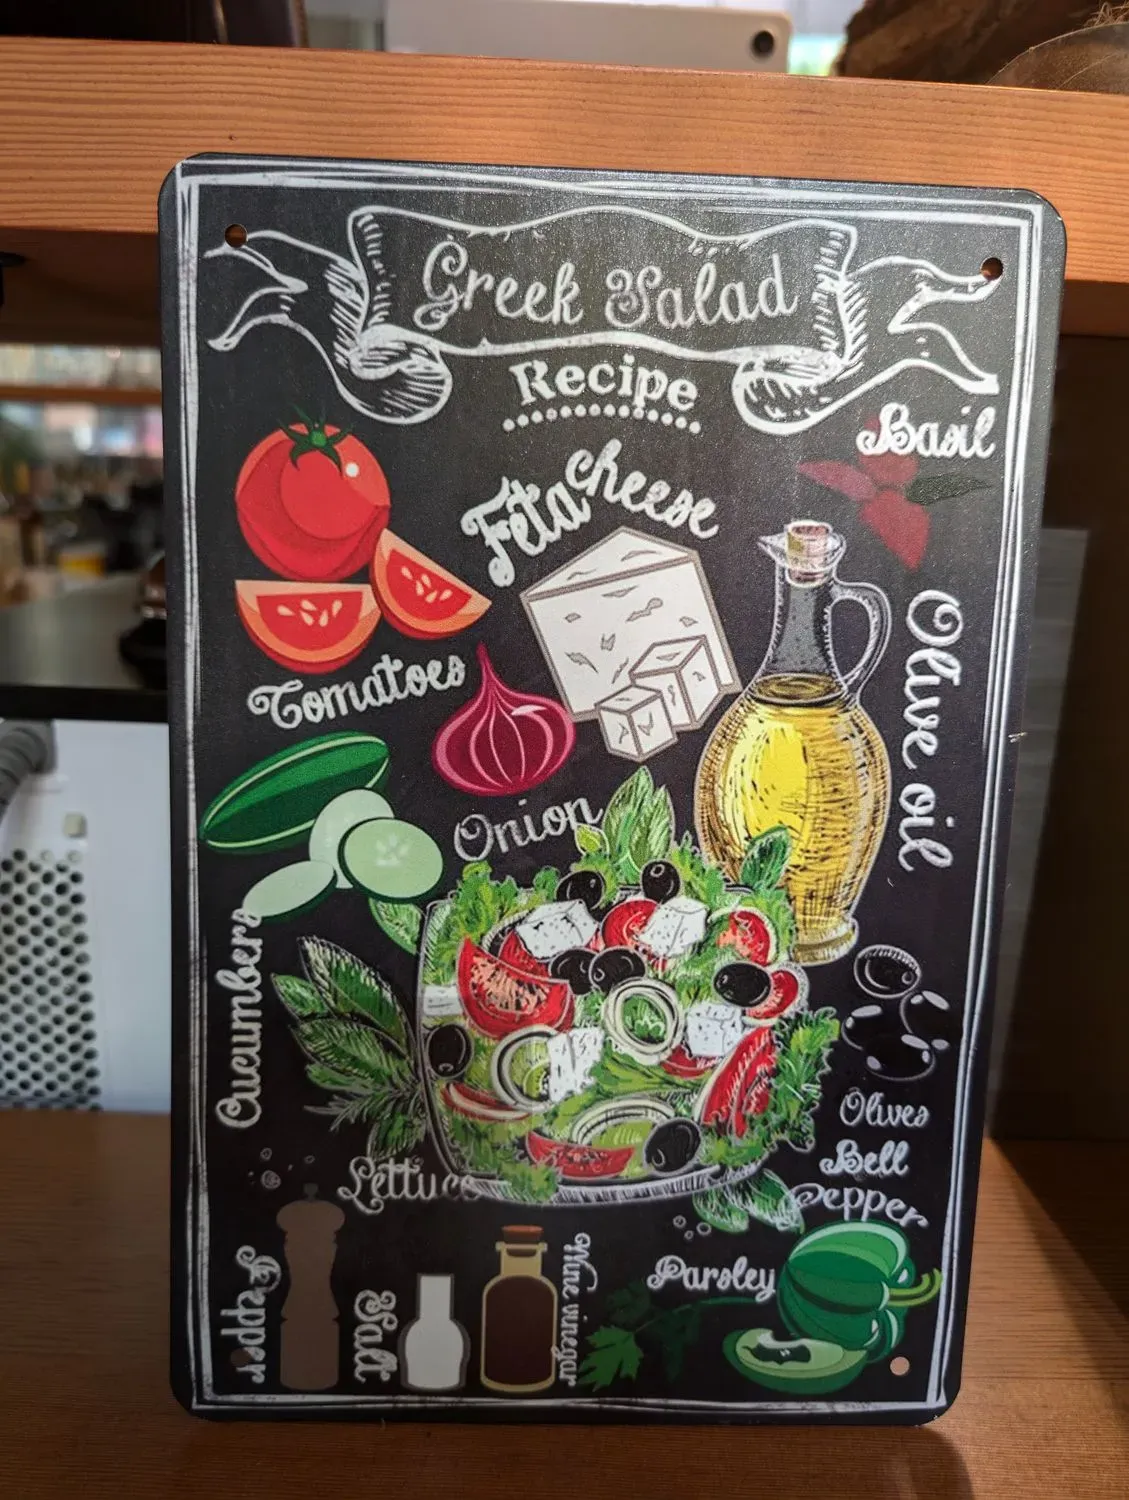 Greek Salad
Recipe
Basil
Feta cheese
Tomatoes
Olive oil
Onion
Cucumbers
Olives
Bell
Pepper
Lettuce
Parsley
Pepper
Salt
Wine vinegar